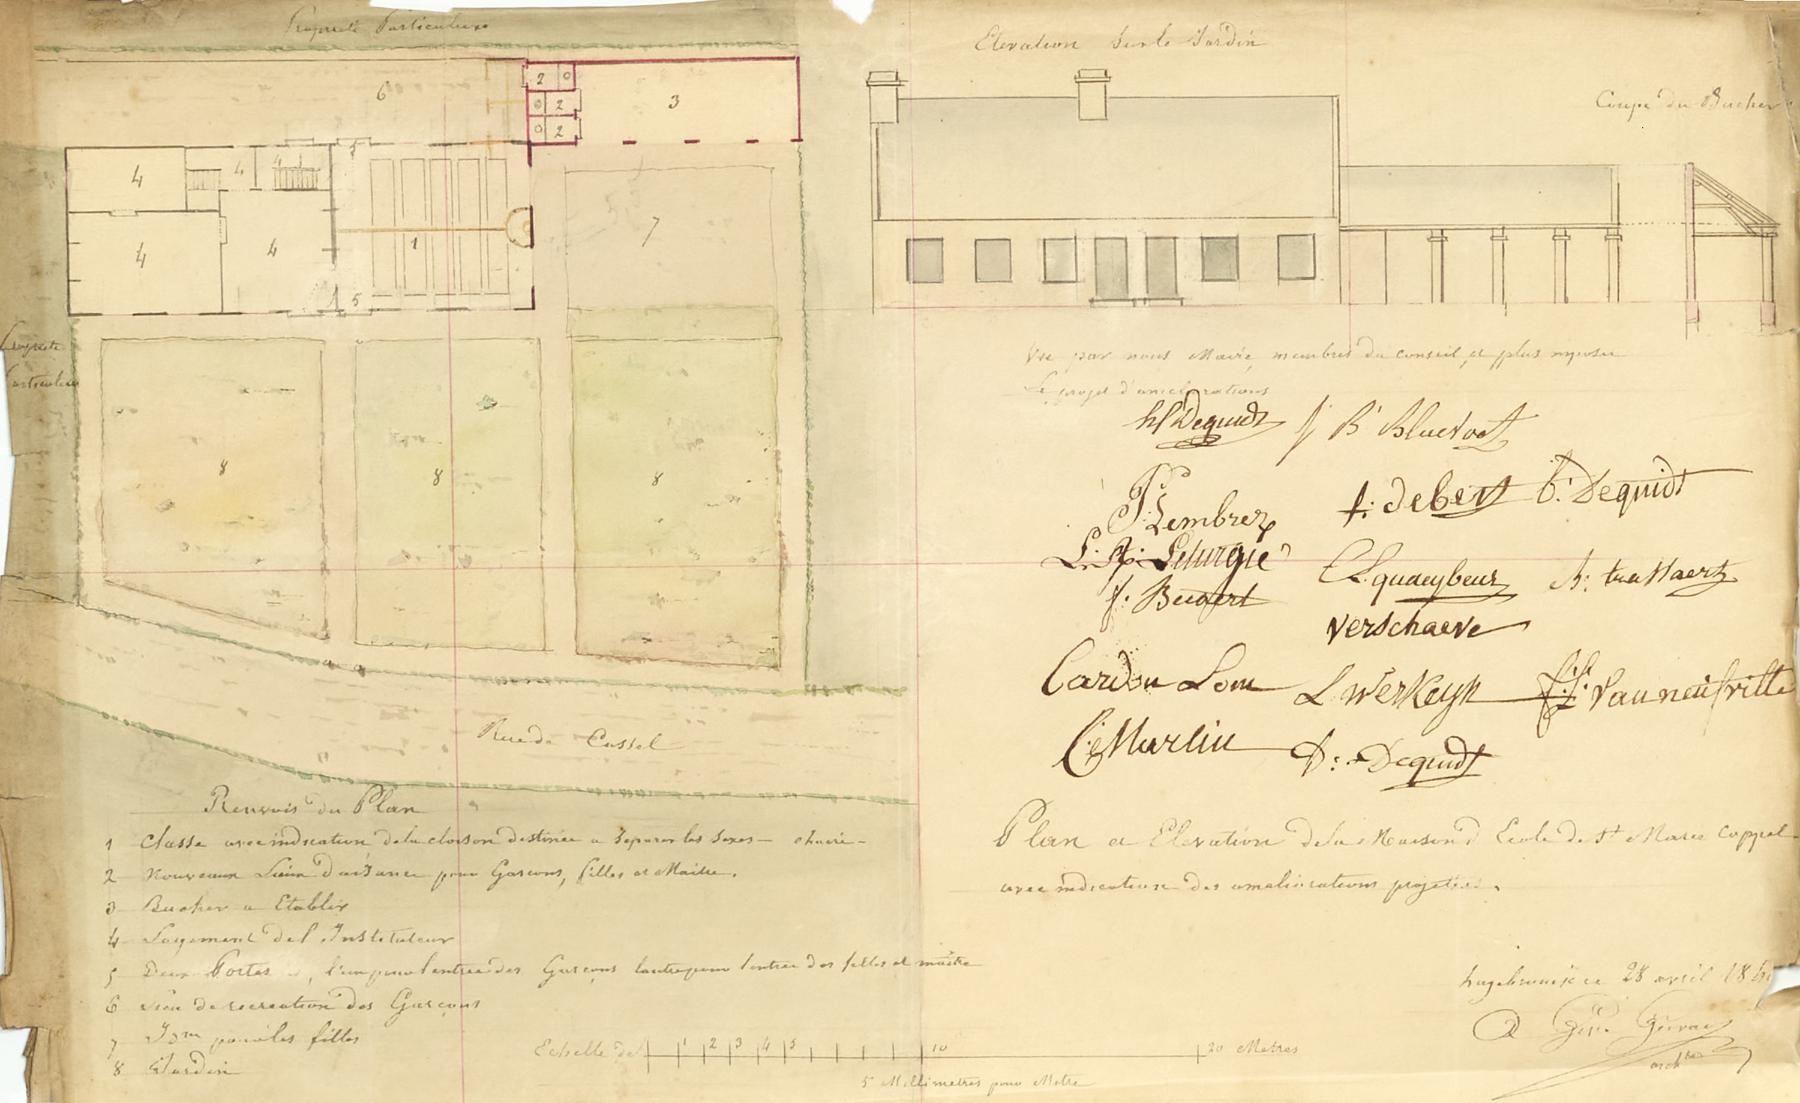 Propriété Particulière
Elevation sur le Jardin
Coupe du Bucher
6
2
2
2
3
5
4
4
4
4
4
4
1
7
5
Propriété
Particulière
8
8
8
Rue de Cassel
Vu par nous Maire, membres du conseil, et plus
Le projet d'améliorations
Dequidt J B Bluevoet
P. Lembrez f. debert b. Dequidt
L. Leturgie C L quaeybeur trassaert
f. Beugert
verschaeve
Cardon Lom L Werkeyn Vanneufville
C. Marlin D. Dequidt
Renvois du Plan
1 Classe avec indication de la cloison destinée a separer les sexes — chaire —
2 Nouveaux Lieux d'aisance pour Garçons, filles et Maitre.
3 Bucher a Etablir
4 Logement de l'Instituteur
5 Deux Portes, l'un pour l'entrée des Garçons l'autre pour l'entrée des filles et maitre
6 Lieu de recreation des Garçons
7 Idm pour les filles
8 Jardin
Plan et Elevation de la Maison d'Ecole de St Marie Cappel
avec indication des améliorations projetées.
hazebrouck ce 28 avril 18
archte
Echelle de 1 2 3 4 5 10 20 Metres
5 Millimetres pour Metre